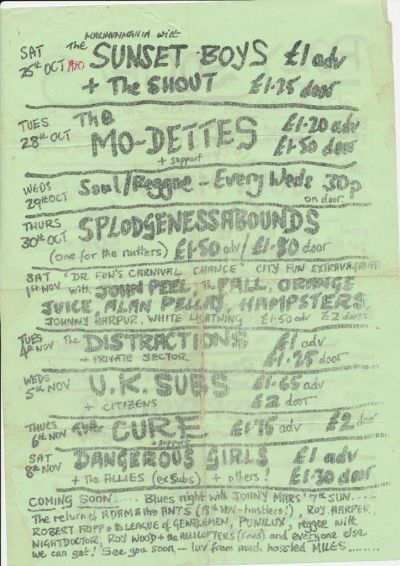 SAT
25th OCT 1980
The
SUNSET BOYS £1 adv
+ The SHOUT £1·25 door
TUES
28th OCT
The
MO-DETTES £1·20 adv
+ support £1·50 door
WEDS
29th OCT
Soul/Reggae - Every Weds 30p
on door
THURS
30th OCT
SPLODGENESSABOUNDS
(one for the nutters) £1·50 adv / £1·80 door
SAT
1st NOV
'DR FUN'S CARNIVAL CHANCE' CITY FUN EXTRAVAGANZA
with JOHN PEEL, The FALL, ORANGE
JUICE, ALAN PELLAY, HAMPSTERS,
JOHNNY HARPUR, WHITE LIGHTNING £1·50 adv £2 door
TUES
4th NOV
The DISTRACTIONS £1 adv
+ PRIVATE SECTOR £1·25 door
WEDS
5th NOV
U.K. SUBS £1·65 adv
+ CITIZENS £2 door
THURS
6th NOV
CURE £1·75 adv £2 door
+ support
SAT
8th NOV
DANGEROUS GIRLS £1 adv
+ The ALLIES (ex Subs) + others! £1·30 door
COMING SOON..... Blues night with JOHNY MARS 7th SUN....
The return of ADAM & the ANTS (18th NOV - hustlers!), ROY HARPER,
ROBERT FRIPP & The LEAGUE of GENTLEMEN, PUNILUX, reggae with
NIGHTDOCTOR, ROY WOOD + the HELICOPTERS and everyone else
we can get! See you soon - luv from much hassled MILES.......